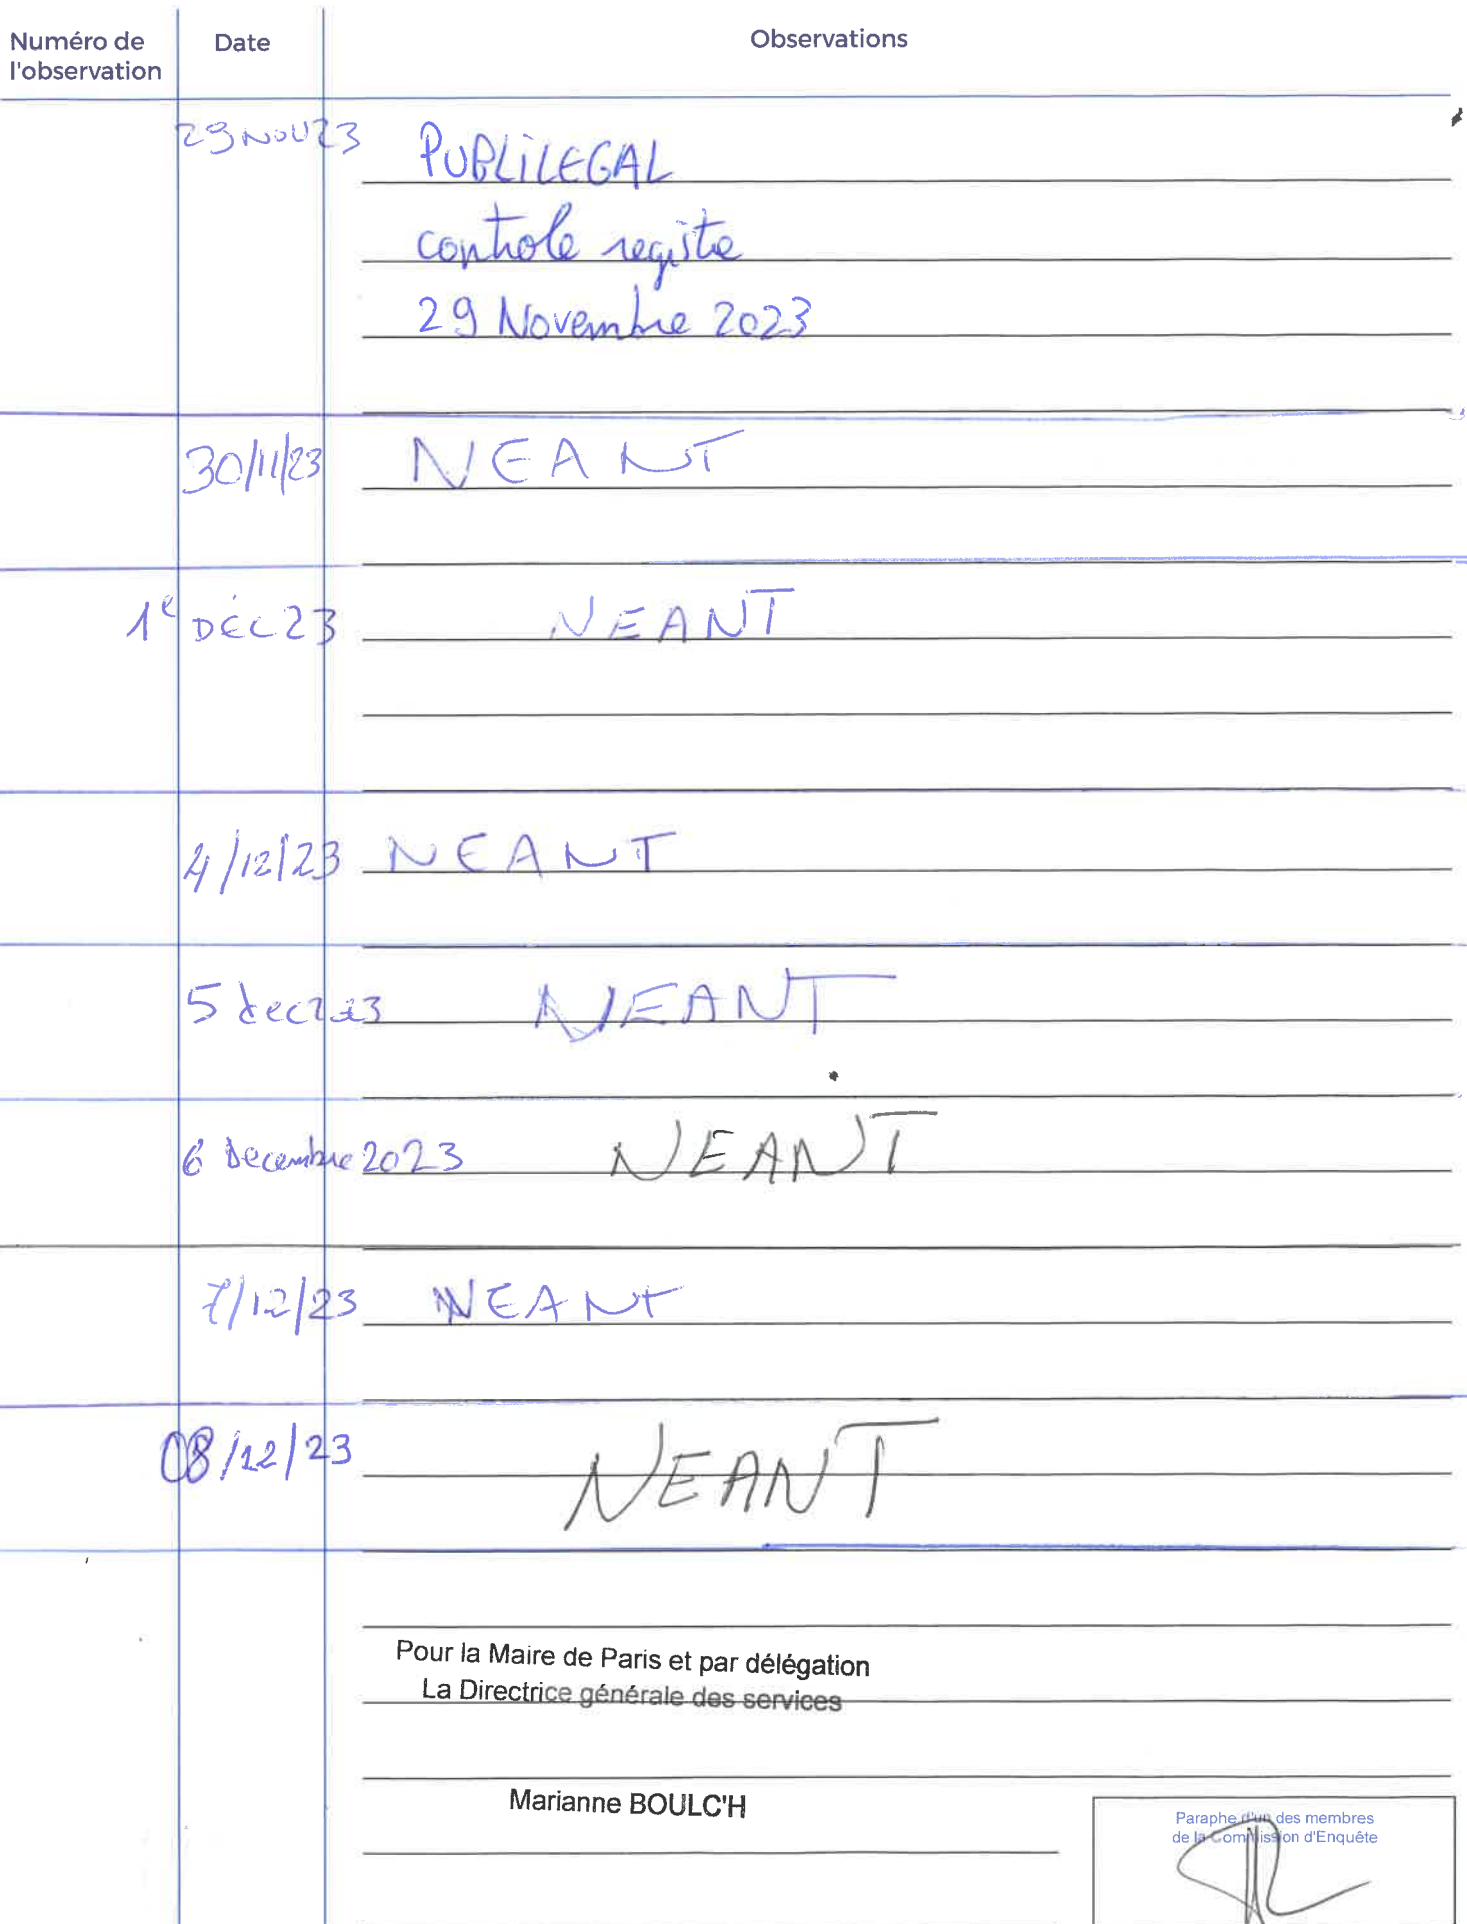 Numéro de l'observation Date Observations
29 NOV 23 PUBLiLEGAL
controle registre
29 Novembre 2023
30/11/23 NEANT
1e DÉC 23 NEANT
4/12/23 NEANT
5 dec 23 NEANT
6 Decembre 2023 NEANT
7/12/23 NEANT
08/12/23 NEANT
Pour la Maire de Paris et par délégation
La Directrice générale des services
Marianne BOULC'H
Paraphe d'un des membres
de la Commission d'Enquête